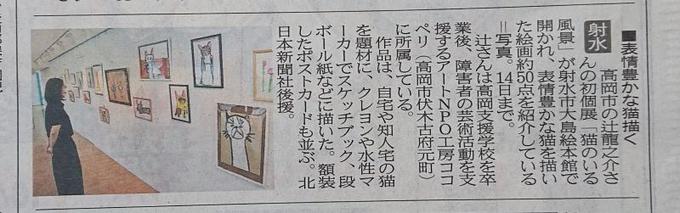 ■表情豊かな猫描く
射水　高岡市の辻龍之介さ
んの初個展「猫のいる
風景」が射水市大島絵本館で
開かれ、表情豊かな猫を描い
た絵画約50点を紹介している
＝写真。14日まで。
辻さんは高岡支援学校を卒
業後、障害者の芸術活動を支
援するアートNPO工房ココ
ペリ（高岡市伏木古府元町）
に所属している。
作品は、自宅や知人宅の猫
を題材に、クレヨンや水性マ
ーカーでスケッチブック、段
ボール紙などに描いた。額装
したポストカードも並ぶ。北
日本新聞社後援。